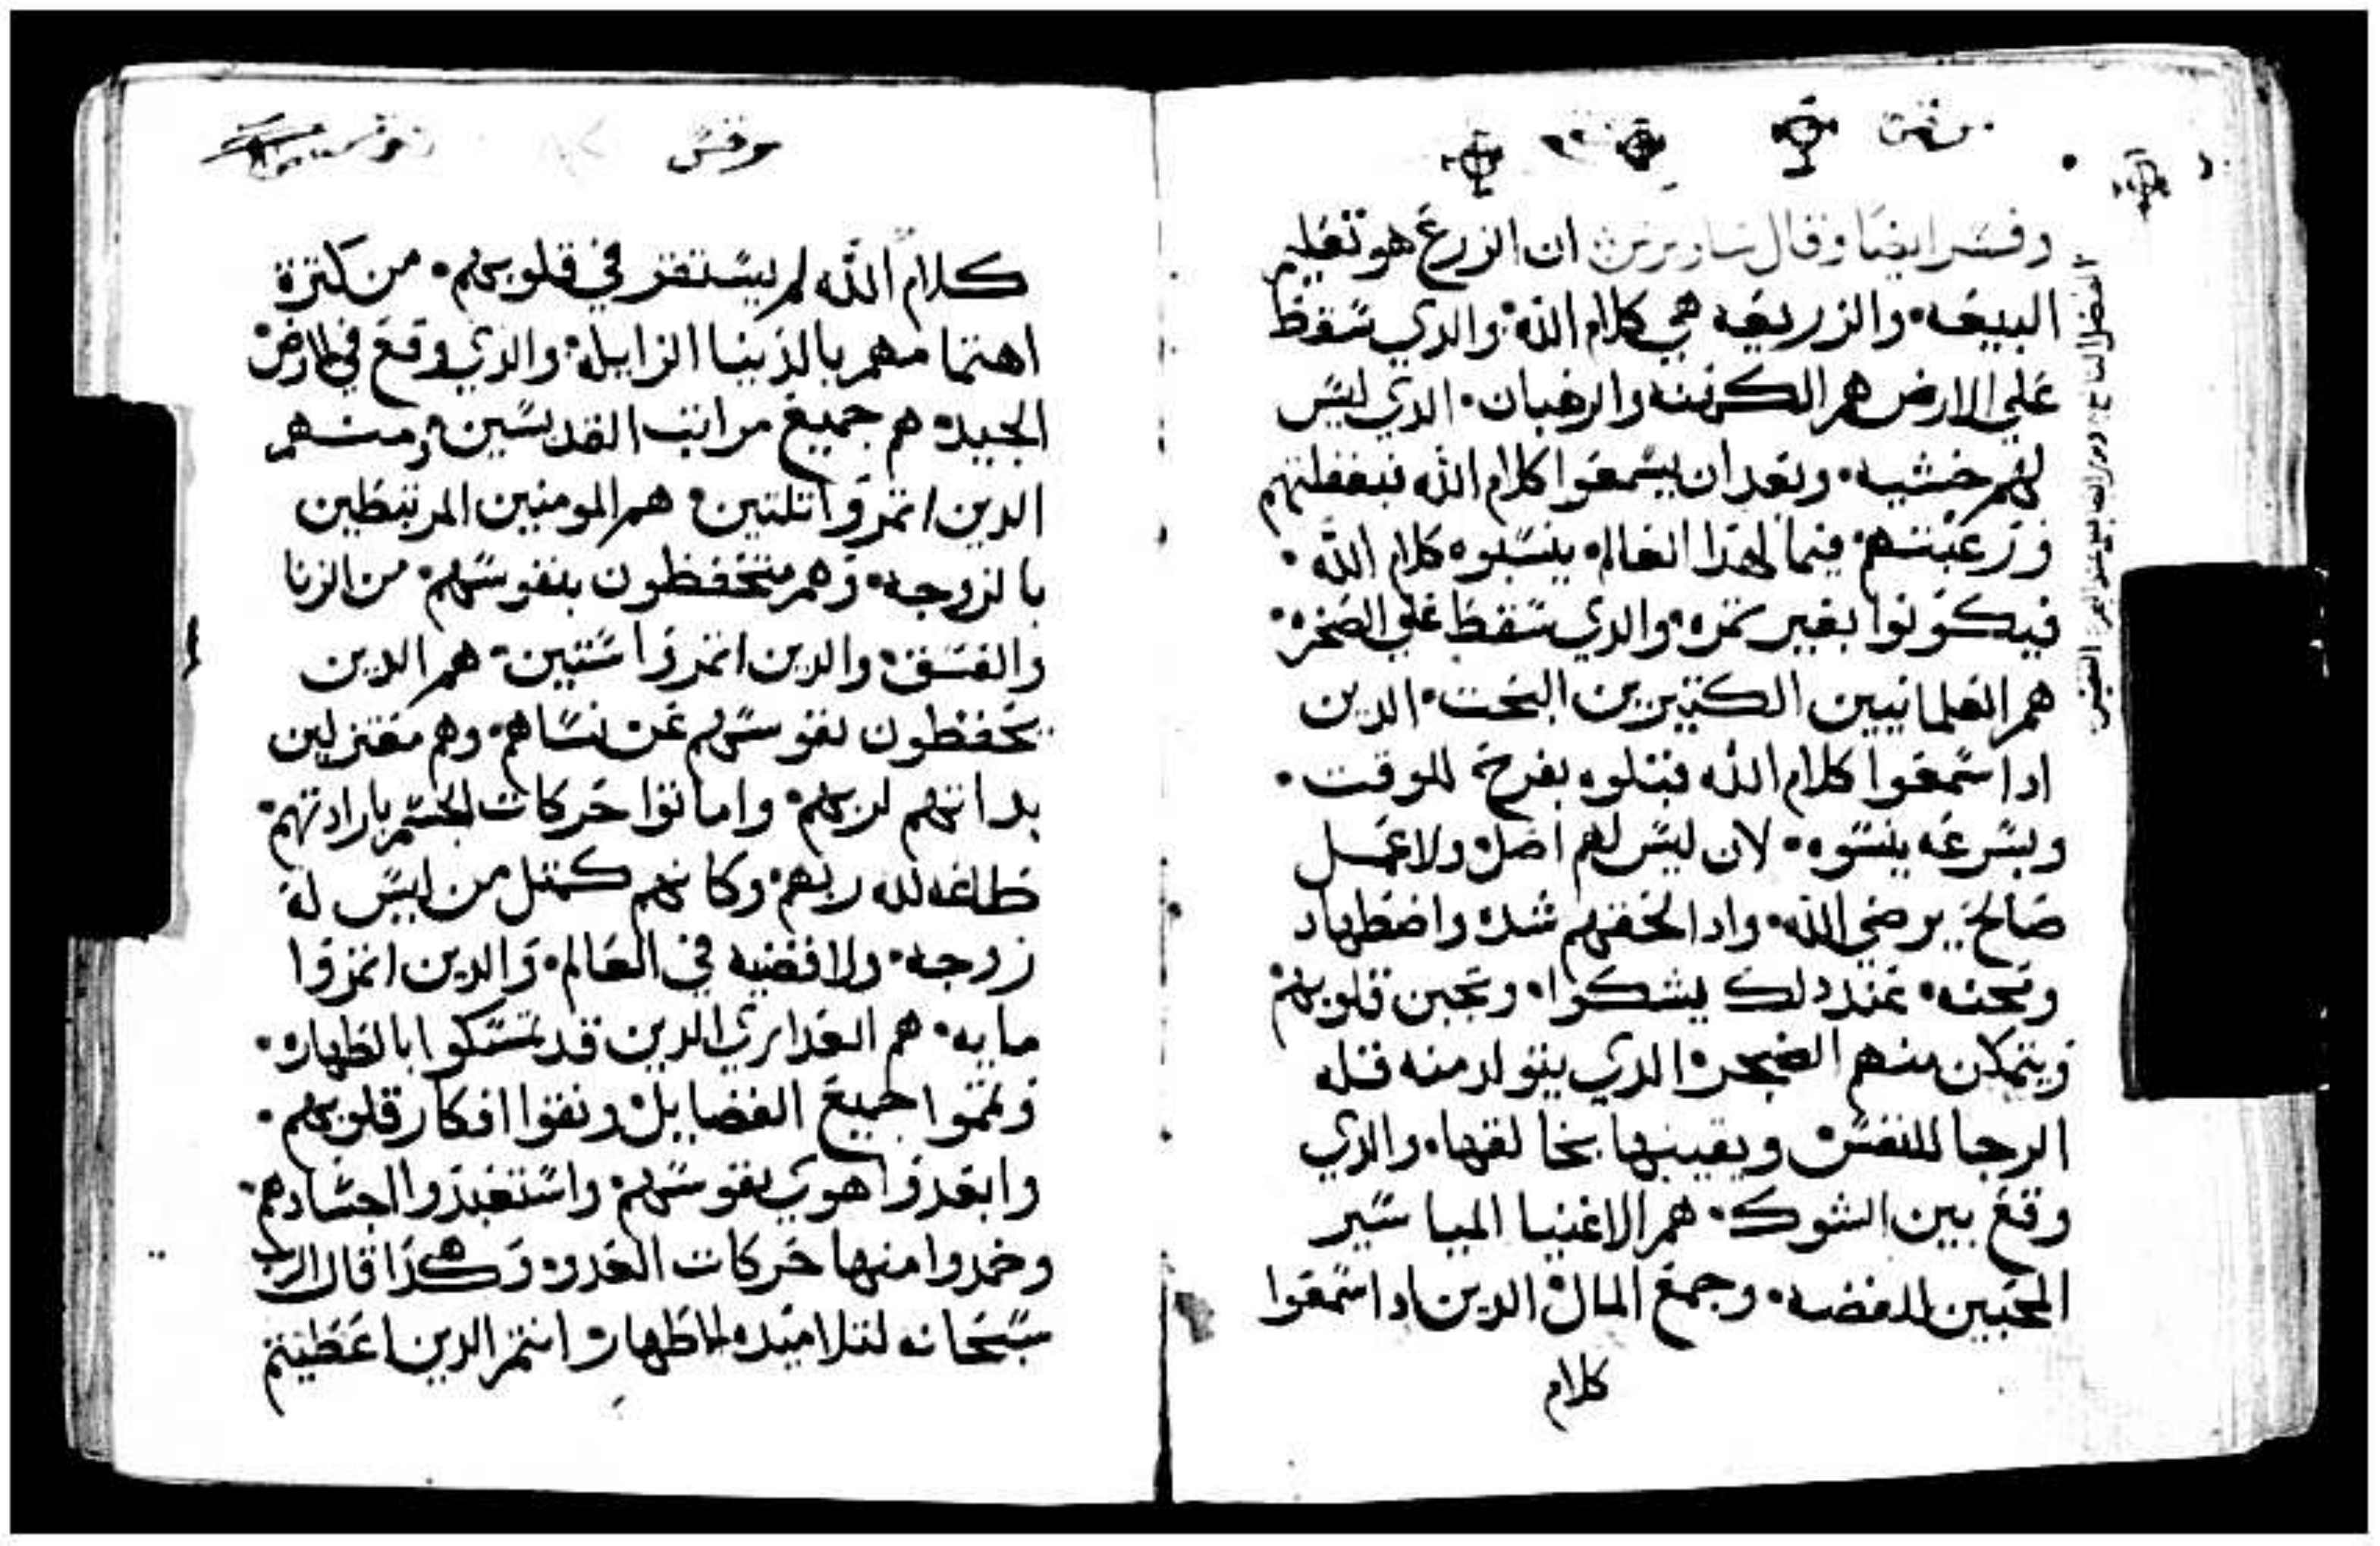 مرقس
وفسر ايضا وقال ساويرس ان الزرع هو تعليم
البيعه والزريعه هي كلام الله والدي سقط
علي الارض هم الكهنه والرهبان الدي ليس
لهم خشيه وبعد ان يسمعوا كلام الله فبغفلتهم
ورغبتهم فيما لهدا العالم ينسبوه كلام الله
فيكونوا بغير تمره والدي سقط علي الصخره
هم العلمانيين الكتيرين البخت الدين
ادا سمعوا كلام الله قبلوه بفرح للوقت
وبسرعه ينسوه لان ليس لهم اصل ولا عمل
صالح يرضي الله وادا لحقهم شده واضطهاد
ومحنه عند دلك يشكوا وتجبن قلوبهم
ويتمكن منهم الضجر الدي يتولد منه قله
الرجا للنفس ويقينها بخالقها والدي
وقع بين الشوك هم الاغنيا المياسير
المحبين للفضه وجمع المال الدين ادا سمعوا
كلام
مرقس
كلام الله لم يستقر في قلوبهم من كترة
اهتمامهم بالدنيا الزايله والدي وقع في الارض
الجيده هم جميع مراتب القديسين ومنهم
الدين اتمروا تلتين هم المومنين المرتبطين
بالزوجه وهم متحفظون بنفوسهم من الزنا
والفسق والدين اتمروا ستين هم الدين
يحفظون نفوسهم عن نساهم وهم معتزلين
بداتهم لربهم واماتوا حركات الجسم بارادتهم
طاعه لله ربهم وكانهم كمتل من ليس له
زوجه ولا قضيه في العالم والدين اتمروا
مايه هم العداري الدين قد تمسكوا بالطهاره
وتمموا جميع الفضايل ونقوا افكار قلوبهم
وابعدوا هوي نفوسهم واستعبدوا اجسادهم
وخمدوا منها حركات العدو وهكدا قال الرب
سبحانه لتلاميده الاطهار انتم الدين اعطيتم